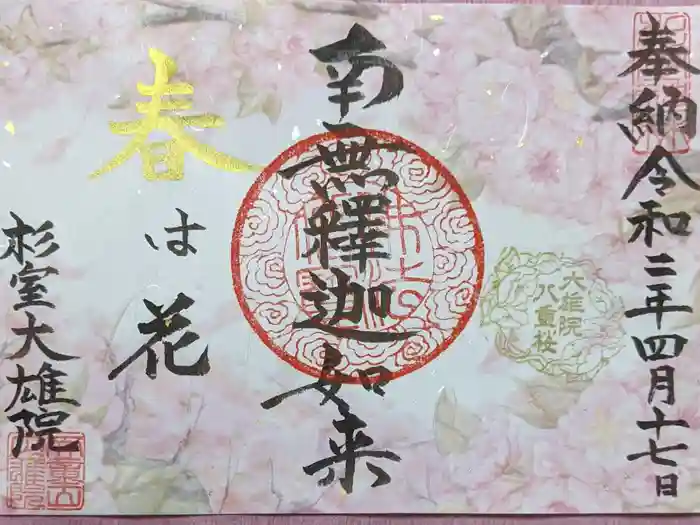 奉納
令和二年四月十七日
大雄院
八重桜
南無釋迦如来
春は花
杉室大雄院